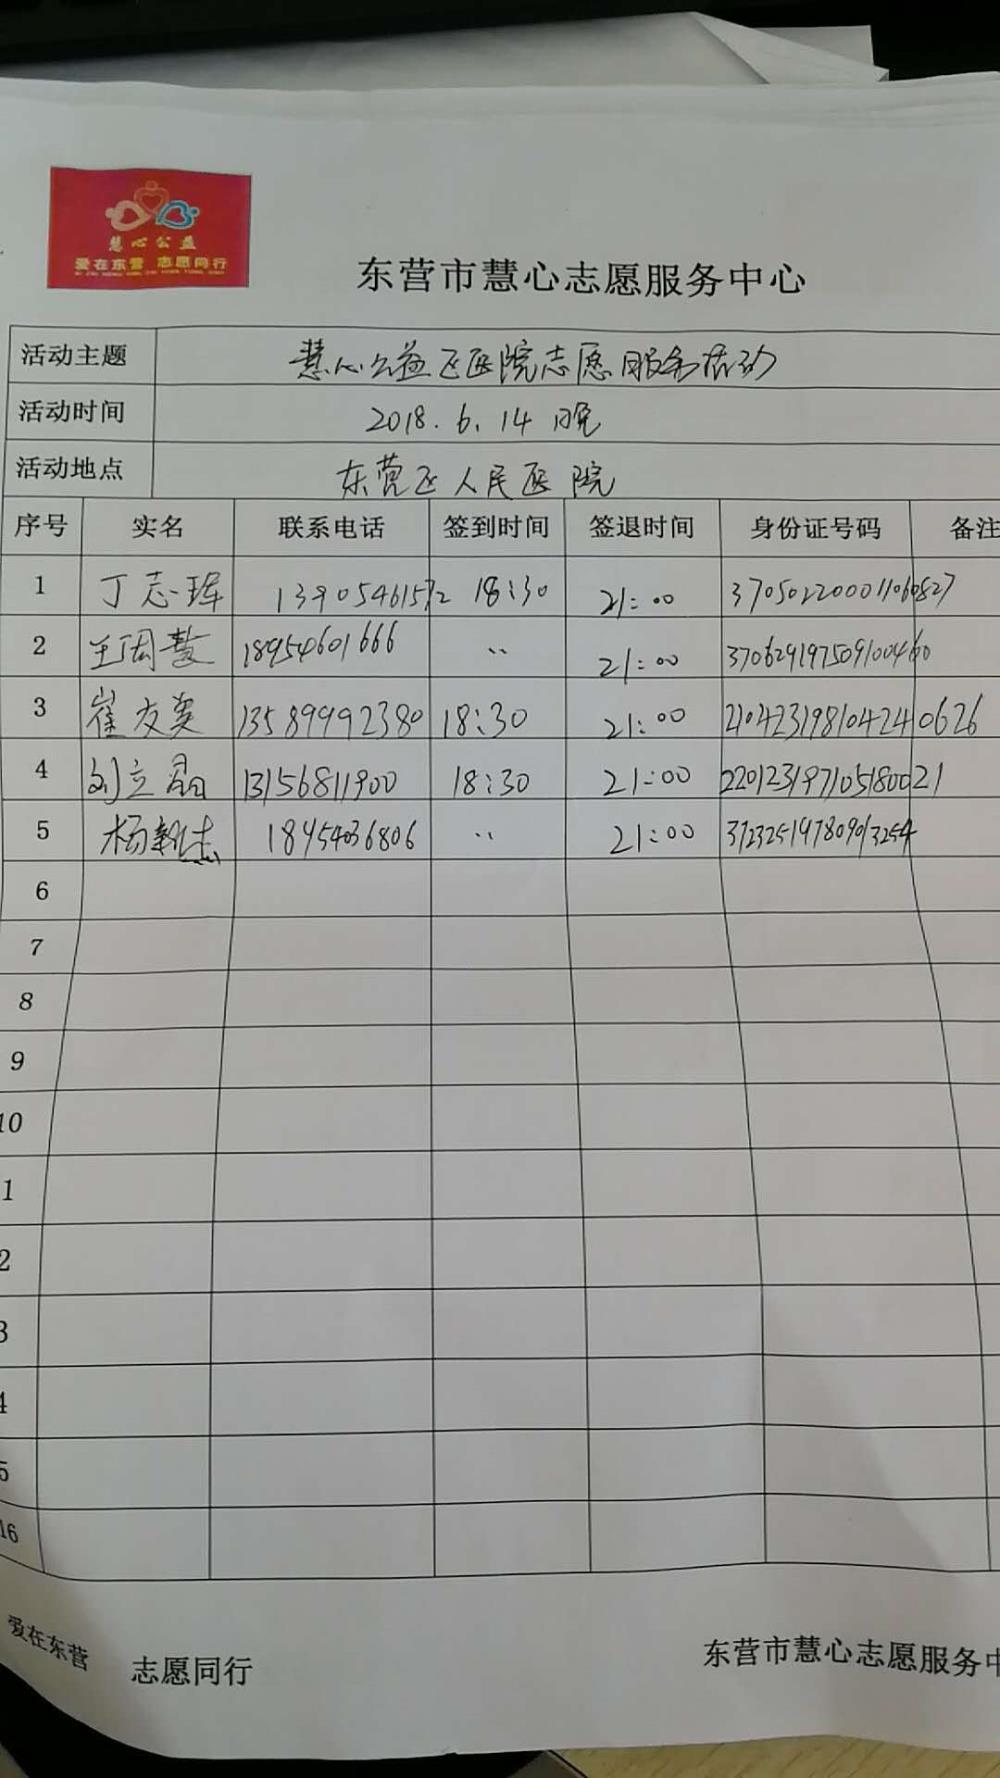 慧心公益
爱在东营 志愿同行
东营市慧心志愿服务中心
活动主题 慧心公益区医院志愿服务活动
活动时间 2018.6.14 晚
活动地点 东营区人民医院
序号 实名 联系电话 签到时间 签退时间 身份证号码 备注
1 丁志珲 13905461572 18:30 21:00 370502200011060827
2 18954601666 〃 21:00 370629197509100460
3 崔友美 13589992380 18:30 21:00 210423198104240626
4 刘立晶 13156811900 18:30 21:00 220123197105180021
5 杨新杰 18954036806 〃 21:00 372325197809013254
6
7
8
9
10
1
2
3
4
5
16
爱在东营 志愿同行 东营市慧心志愿服务中